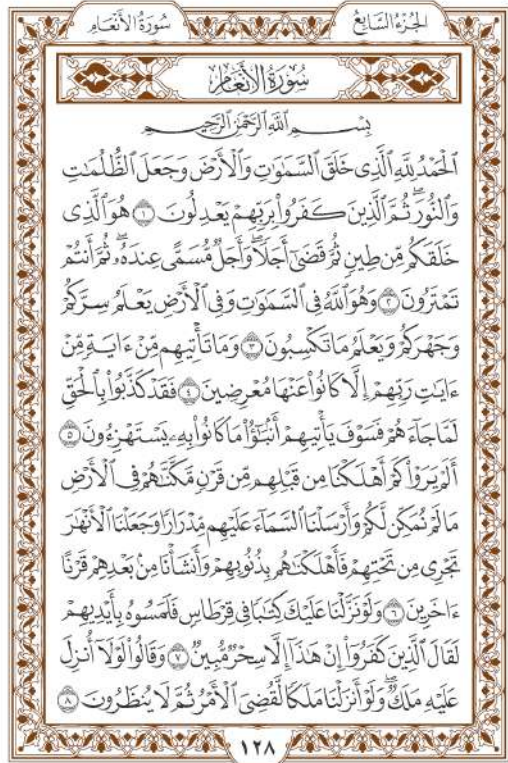 الجُزْءُ السَّابِعُ سُورَةُ الأَنْعَامِ
سُورَةُ الأَنْعَامِ
بِسْمِ ٱللَّهِ ٱلرَّحْمَٰنِ ٱلرَّحِيمِ
ٱلْحَمْدُ لِلَّهِ ٱلَّذِى خَلَقَ ٱلسَّمَٰوَٰتِ وَٱلْأَرْضَ وَجَعَلَ ٱلظُّلُمَٰتِ
وَٱلنُّورَۖ ثُمَّ ٱلَّذِينَ كَفَرُواْ بِرَبِّهِمْ يَعْدِلُونَ ١ هُوَ ٱلَّذِى
خَلَقَكُم مِّن طِينٍ ثُمَّ قَضَىٰٓ أَجَلًاۖ وَأَجَلٌ مُّسَمًّى عِندَهُۥۖ ثُمَّ أَنتُمْ
تَمْتَرُونَ ٢ وَهُوَ ٱللَّهُ فِى ٱلسَّمَٰوَٰتِ وَفِى ٱلْأَرْضِ يَعْلَمُ سِرَّكُمْ
وَجَهْرَكُمْ وَيَعْلَمُ مَا تَكْسِبُونَ ٣ وَمَا تَأْتِيهِم مِّنْ ءَايَةٍ مِّنْ
ءَايَٰتِ رَبِّهِمْ إِلَّا كَانُواْ عَنْهَا مُعْرِضِينَ ٤ فَقَدْ كَذَّبُواْ بِٱلْحَقِّ
لَمَّا جَآءَهُمْ فَسَوْفَ يَأْتِيهِمْ أَنۢبَٰٓؤُاْ مَا كَانُواْ بِهِۦ يَسْتَهْزِءُونَ ٥
أَلَمْ يَرَوْاْ كَمْ أَهْلَكْنَا مِن قَبْلِهِم مِّن قَرْنٍ مَّكَّنَّٰهُمْ فِى ٱلْأَرْضِ
مَا لَمْ نُمَكِّن لَّكُمْ وَأَرْسَلْنَا ٱلسَّمَآءَ عَلَيْهِم مِّدْرَارًا وَجَعَلْنَا ٱلْأَنْهَٰرَ
تَجْرِى مِن تَحْتِهِمْ فَأَهْلَكْنَٰهُم بِذُنُوبِهِمْ وَأَنشَأْنَا مِنۢ بَعْدِهِمْ قَرْنًا
ءَاخَرِينَ ٦ وَلَوْ نَزَّلْنَا عَلَيْكَ كِتَٰبًا فِى قِرْطَاسٍ فَلَمَسُوهُ بِأَيْدِيهِمْ
لَقَالَ ٱلَّذِينَ كَفَرُوٓاْ إِنْ هَٰذَآ إِلَّا سِحْرٌ مُّبِينٌ ٧ وَقَالُواْ لَوْلَآ أُنزِلَ
عَلَيْهِ مَلَكٌۖ وَلَوْ أَنزَلْنَا مَلَكًا لَّقُضِىَ ٱلْأَمْرُ ثُمَّ لَا يُنظَرُونَ ٨
١٢٨